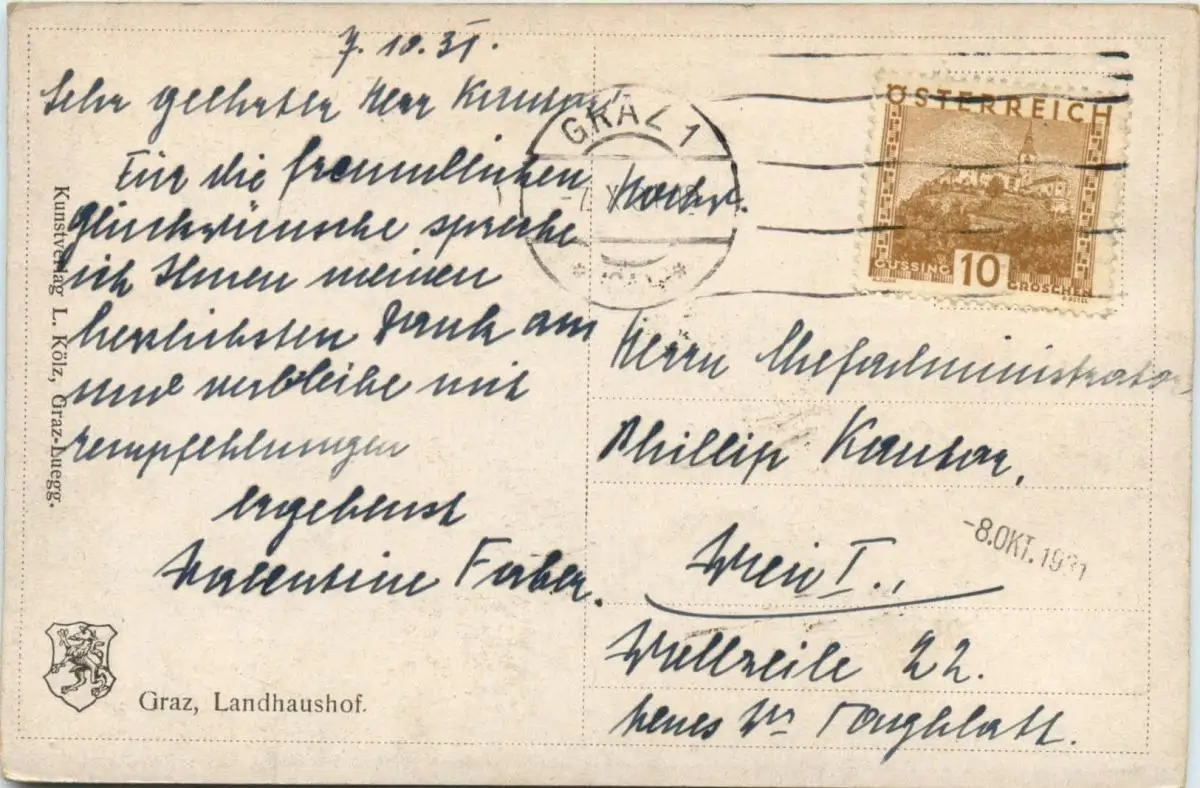 7.10.31.
Sehr geehrter Herr Kantor!
Für die freundlichen
Glückwünsche spreche
ich Ihnen meinen
herzlichsten Dank aus
und verbleibe mit
Empfehlungen
ergebenst
Valentine Faber.
Kunstverlag L. Kölz, Graz-Luegg.
Graz, Landhaushof.
GRAZ 1
ÖSTERREICH
GÜSSING 10 GROSCHEN
Hochw.
Herrn Chefadministrator
Phillip Kantor,
-8.OKT.1931
Wien I.,
Wollzeile 22.
Neues Wr Tagblatt.